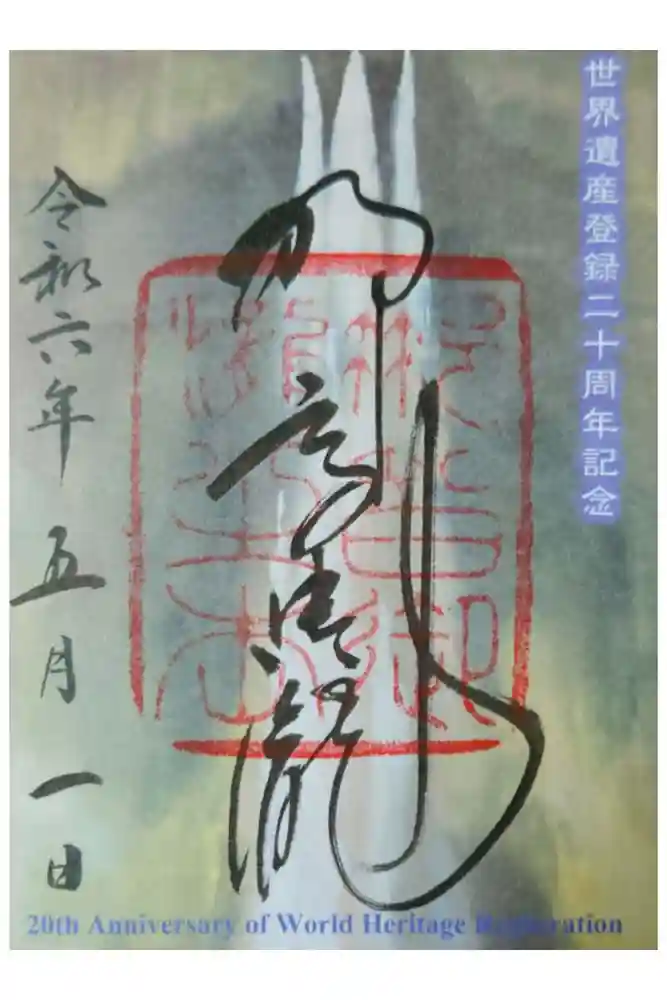 世界遺産登録二十周年記念
那智御瀧
令和六年五月一日
20th Anniversary of World Heritage Registration